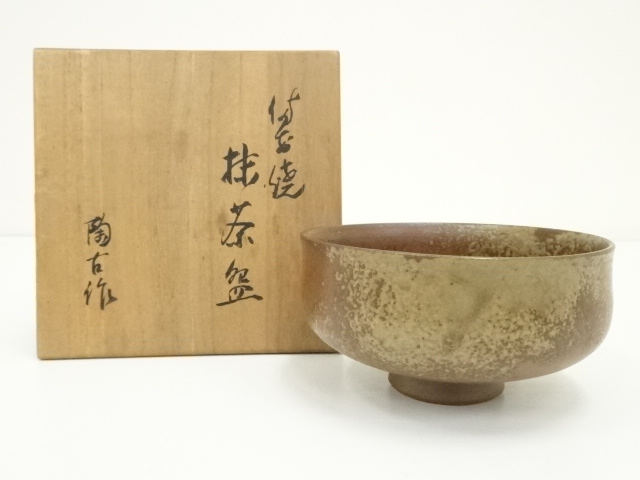 備前焼
抹茶盌
陶古作